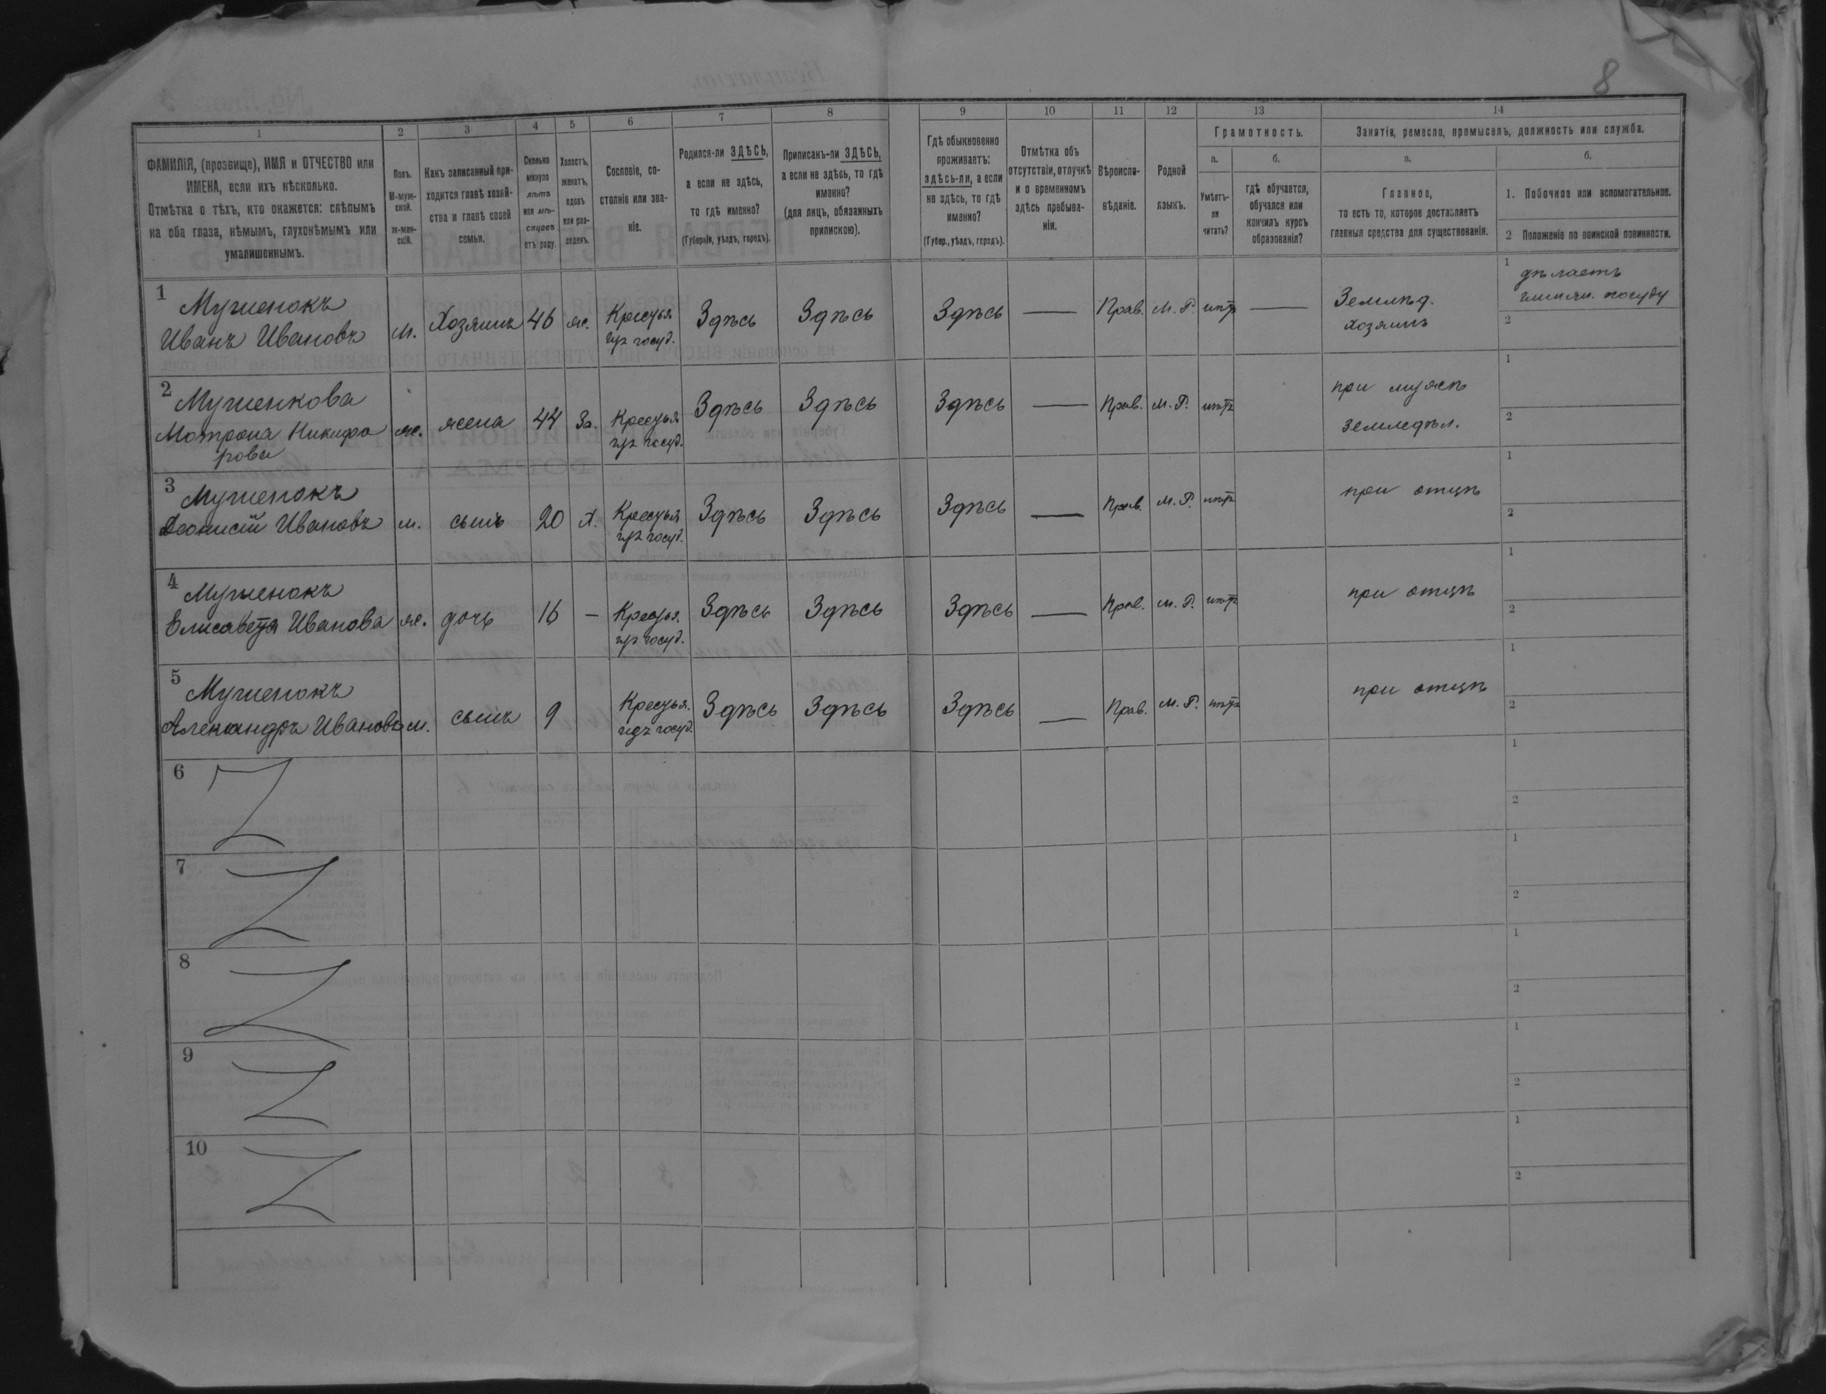 8
1 2 3 4 5 6 7 8 9 10 11 12 13 14
ФАМИЛІЯ, (прозвище), ИМЯ и ОТЧЕСТВО или
ИМЕНА, если ихъ нѣсколько.
Отмѣтка о тѣхъ, кто окажется: слѣпымъ
на оба глаза, нѣмымъ, глухонѣмымъ или
умалишеннымъ.
Полъ.
М-муж-
ской.
Ж-жен-
скій.
Какъ записанный при-
ходится главѣ хозяй-
ства и главѣ своей
семьи.
Сколько
минуло
лѣтъ
или мѣ-
сяцевъ
отъ роду.
Холостъ,
женатъ,
вдовъ
или раз-
веденъ.
Сословіе, со-
стояніе или зва-
ніе.
Родился-ли ЗДѢСЬ,
а если не здѣсь,
то гдѣ именно?
(Губернія, уѣздъ, городъ).
Приписанъ-ли ЗДѢСЬ,
а если не здѣсь, то гдѣ
именно?
(для лицъ, обязанныхъ
припискою).
Гдѣ обыкновенно
проживаетъ:
здѣсь-ли, а если
не здѣсь, то гдѣ
именно?
(Губер., уѣздъ, городъ).
Отмѣтка объ
отсутствіи, отлучкѣ
и о временномъ
здѣсь пребыва-
ніи.
Вѣроиспо-
вѣданіе.
Родной
языкъ.
Грамотность.
а. б.
Умѣетъ-
ли
читать?
гдѣ обучается,
обучался или
кончилъ курсъ
образованія?
Занятія, ремесло, промыселъ, должность или служба.
а. б.
Главное,
то есть то, которое доставляетъ
главныя средства для существованія.
1. Побочное или вспомогательное.
2 Положеніе по воинской повинности.
1 Мушенокъ
Иванъ Ивановъ м. Хозяинъ 46 ж. Крестья
изъ госуд. Здѣсь Здѣсь Здѣсь — Прав. М. Р. нѣтъ — Земляд.
хозяинъ 1 дѣлаетъ
глинян. посуду
2
2 Мушенкова
Матрона Никифо
рова ж. жена 44 За. Крестья
изъ госуд. Здѣсь Здѣсь Здѣсь — Прав. М. Р. нѣтъ при мужѣ
земледѣл. 1
2
3 Мушенокъ
Деонисій Ивановъ м. сынъ 20 х. Крестья
изъ госуд. Здѣсь Здѣсь Здѣсь — Прав. М. Р. нѣтъ при отцѣ 1
2
4 Мушенокъ
Елисавета Иванова ж. дочь 16 — Крестья.
изъ госуд. Здѣсь Здѣсь Здѣсь — Прав. М. Р. нѣтъ при отцѣ 1
2
5 Мушенокъ
Александръ Ивановъ м. сынъ 9 Крестья.
изъ госуд. Здѣсь Здѣсь Здѣсь — Прав. М. Р. нѣтъ при отцѣ 1
2
6 1
2
7 1
2
8 1
2
9 1
2
10 1
2